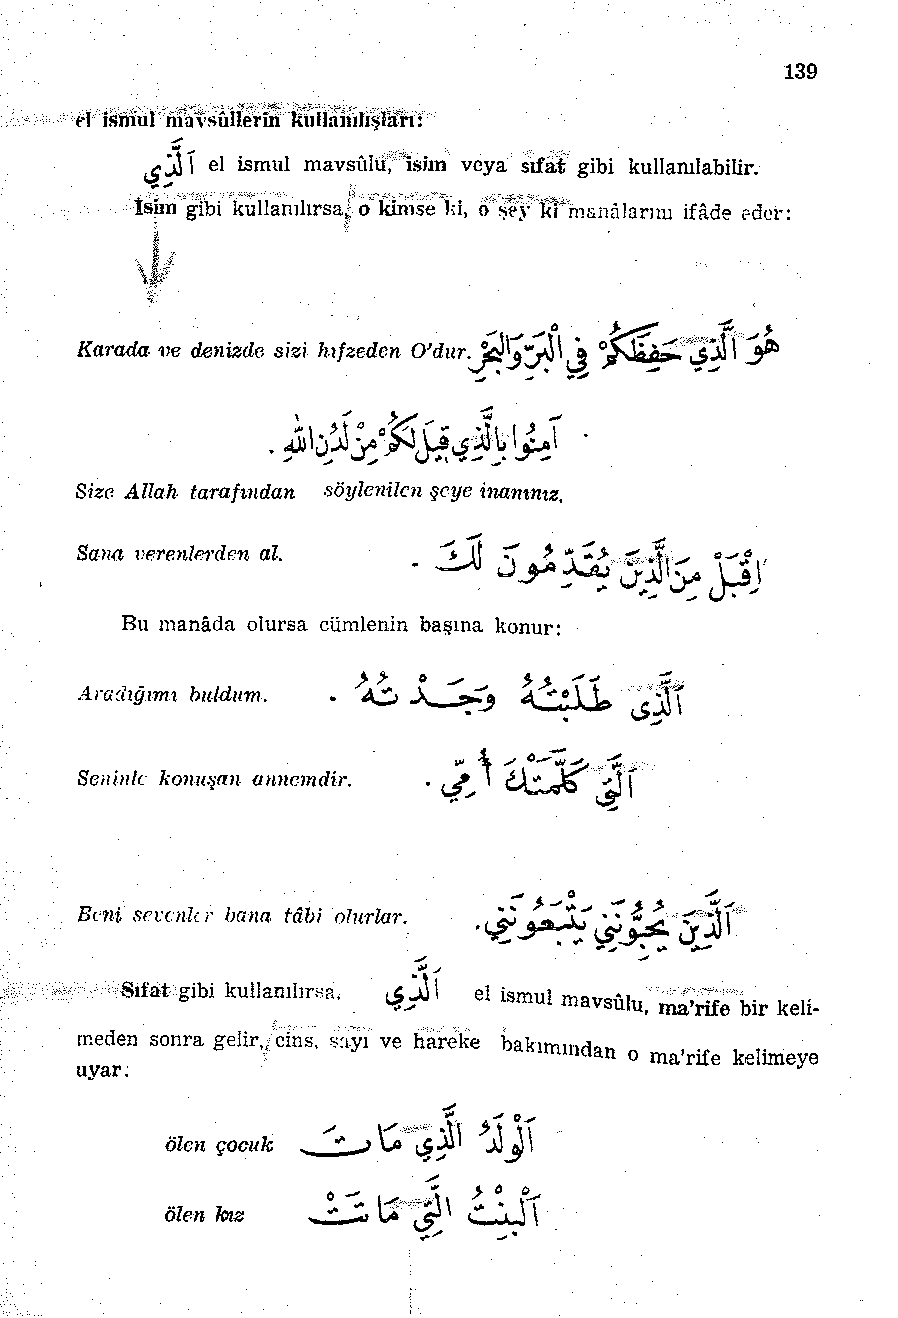 139
el ismul mavsûllerin kullanılışları:
اَلَّذِي el ismul mavsûlü, isim veya sıfat gibi kullanılabilir.
İsim gibi kullanılırsa, o kimse ki, o şey ki manâlarını ifâde eder:
Karada ve denizde sizi hıfzeden O'dur. هُوَ الَّذِي حَفِظَكُمْ فِي الْبَرِّ وَالْبَحْرِ
آمِنُوا بِالَّذِي قِيلَ لَكُمْ مِنْ لَدُنِ اللهِ .
Size Allah tarafından söylenilen şeye inanınız.
Sana verenlerden al. اِقْبَلْ مِنَ الَّذِينَ يُقَدِّمُونَ لَكَ .
Bu manâda olursa cümlenin başına konur:
Aradığımı buldum. اَلَّذِى طَلَبْتُهُ وَجَدْتُهُ .
Seninle konuşan annemdir. اَلَّتِي كَلَّمَتْكَ أُمِّي .
Beni sevenler bana tâbi olurlar. اَلَّذِينَ يُحِبُّونَنِي يَتْبَعُونَنِي .
Sıfat gibi kullanılırsa, اَلَّذِي el ismul mavsûlu, ma'rife bir keli-
meden sonra gelir, cins, sayı ve hareke bakımından o ma'rife kelimeye
uyar:
ölen çocuk اَلْوَلَدُ الَّذِي مَاتَ
ölen kız اَلْبِنْتُ الَّتِي مَاتَتْ